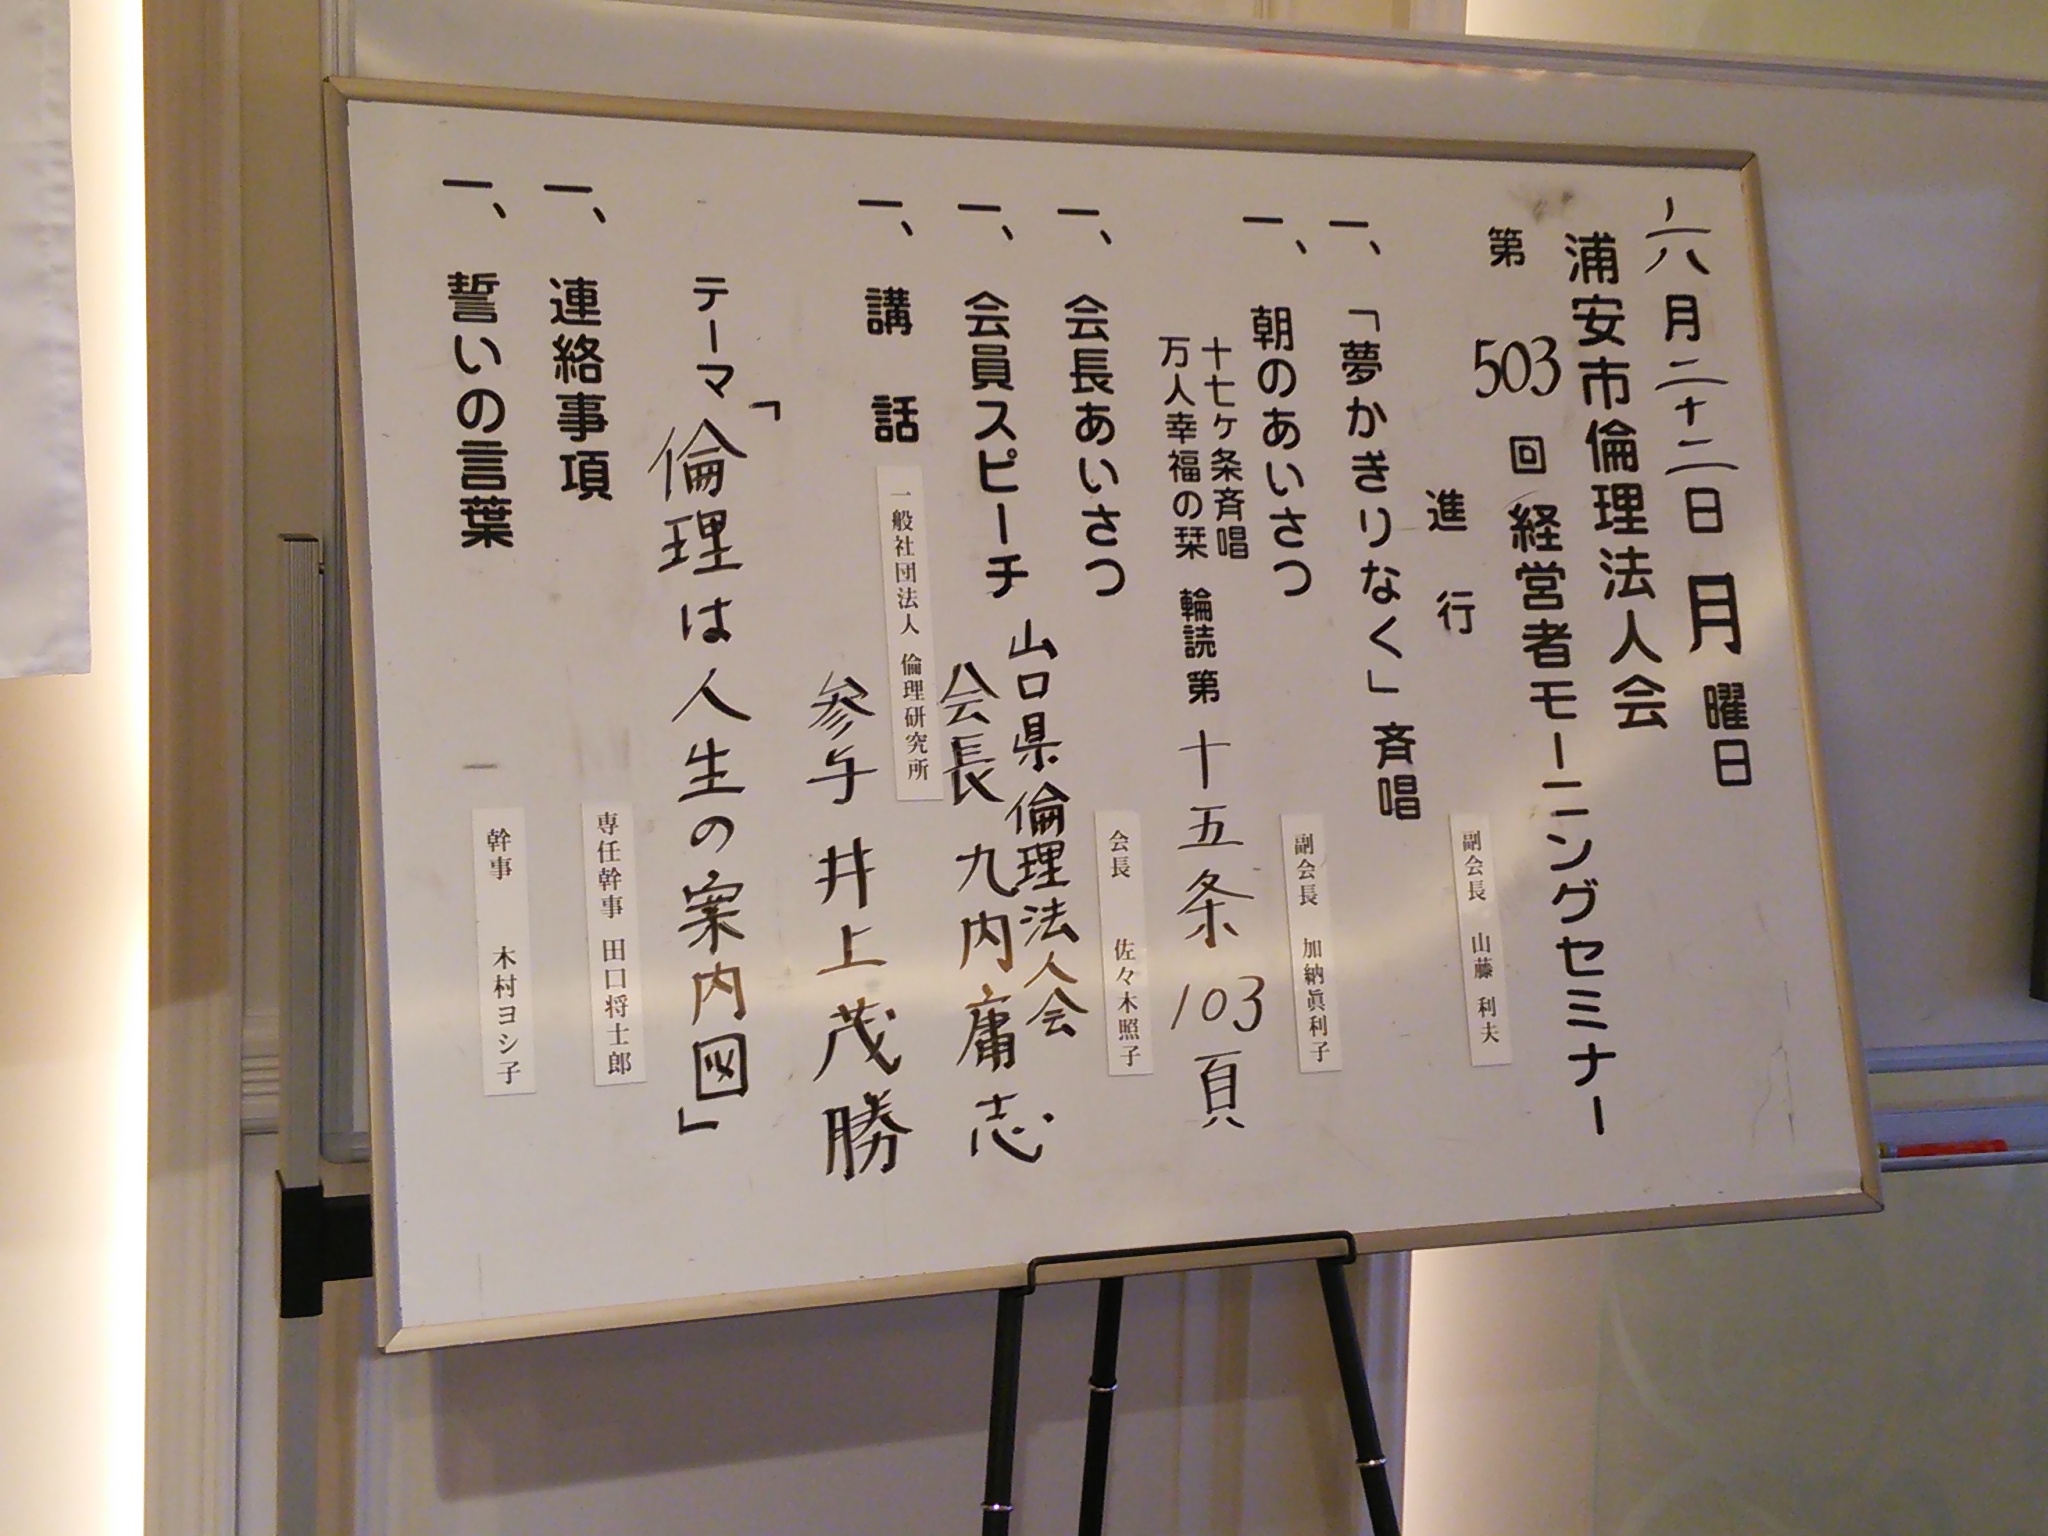 六月二十二日 月曜日
浦安市倫理法人会
第 503 回 経営者モーニングセミナー
進行 副会長 山藤 利夫
一、「夢かぎりなく」斉唱
一、朝のあいさつ 副会長 加納眞利子
十七ヶ条斉唱
万人幸福の栞 輪読第 十五条 103頁
一、会長あいさつ 会長 佐々木照子
一、会員スピーチ 山口県倫理法人会
会長 九内庸志
一、講話 一般社団法人 倫理研究所
参与 井上茂勝
テーマ「倫理は人生の案内図」
一、連絡事項 専任幹事 田口将士郎
一、誓いの言葉 幹事 木村ヨシ子